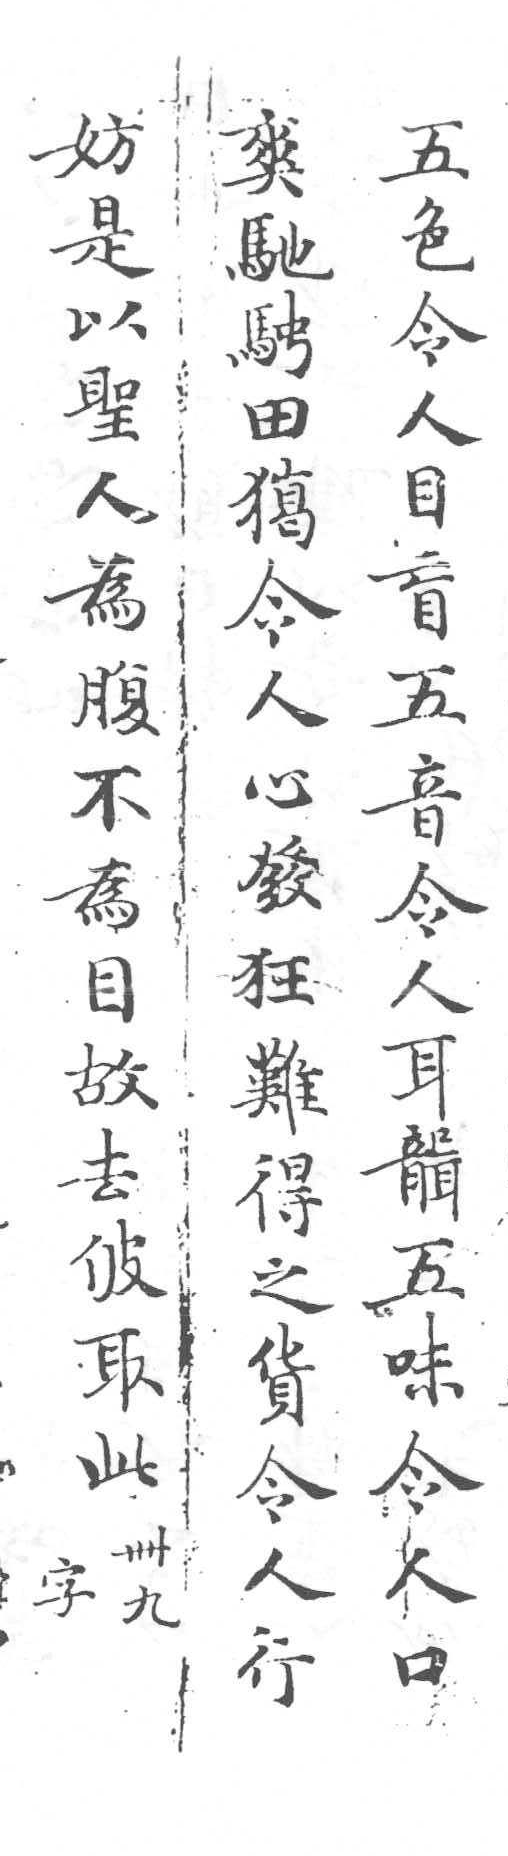 五色令人目盲五音令人耳聾五味令人口
爽馳騁田獦令人心發狂難得之貨令人行
妨是以聖人為腹不為目故去彼取此卌九字